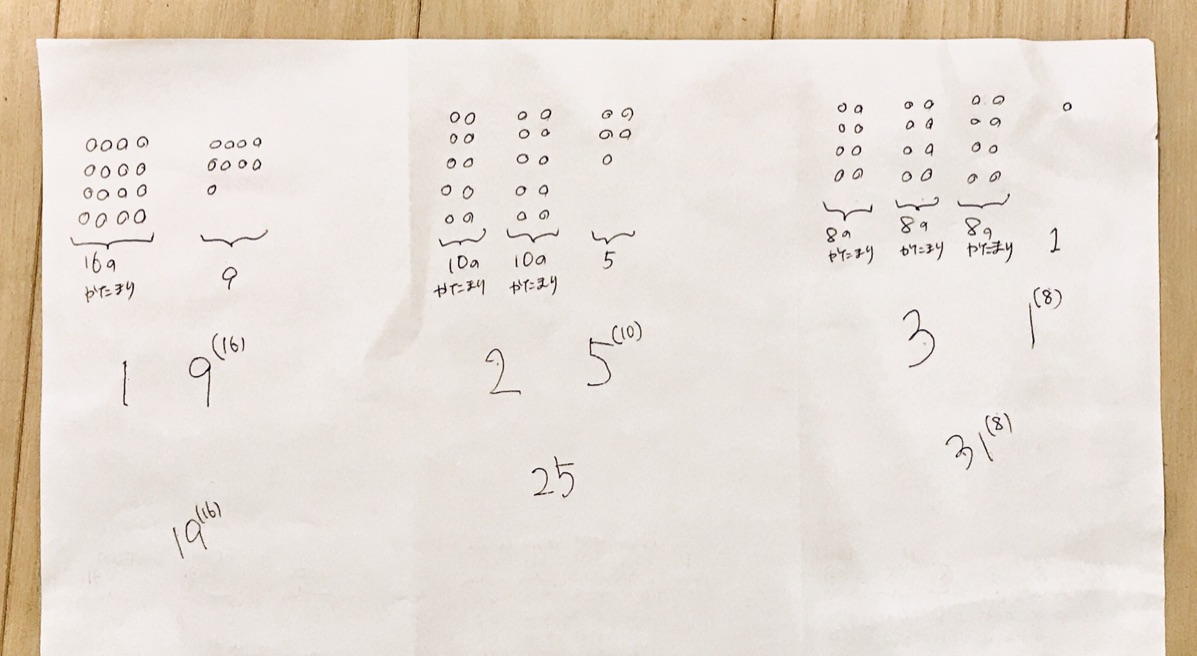 16の
かたまり
9
1 9(16)
19(16)
10の
かたまり
10の
かたまり
5
2 5(10)
25
8の
かたまり
8の
かたまり
8の
かたまり
1
3 1(8)
31(8)